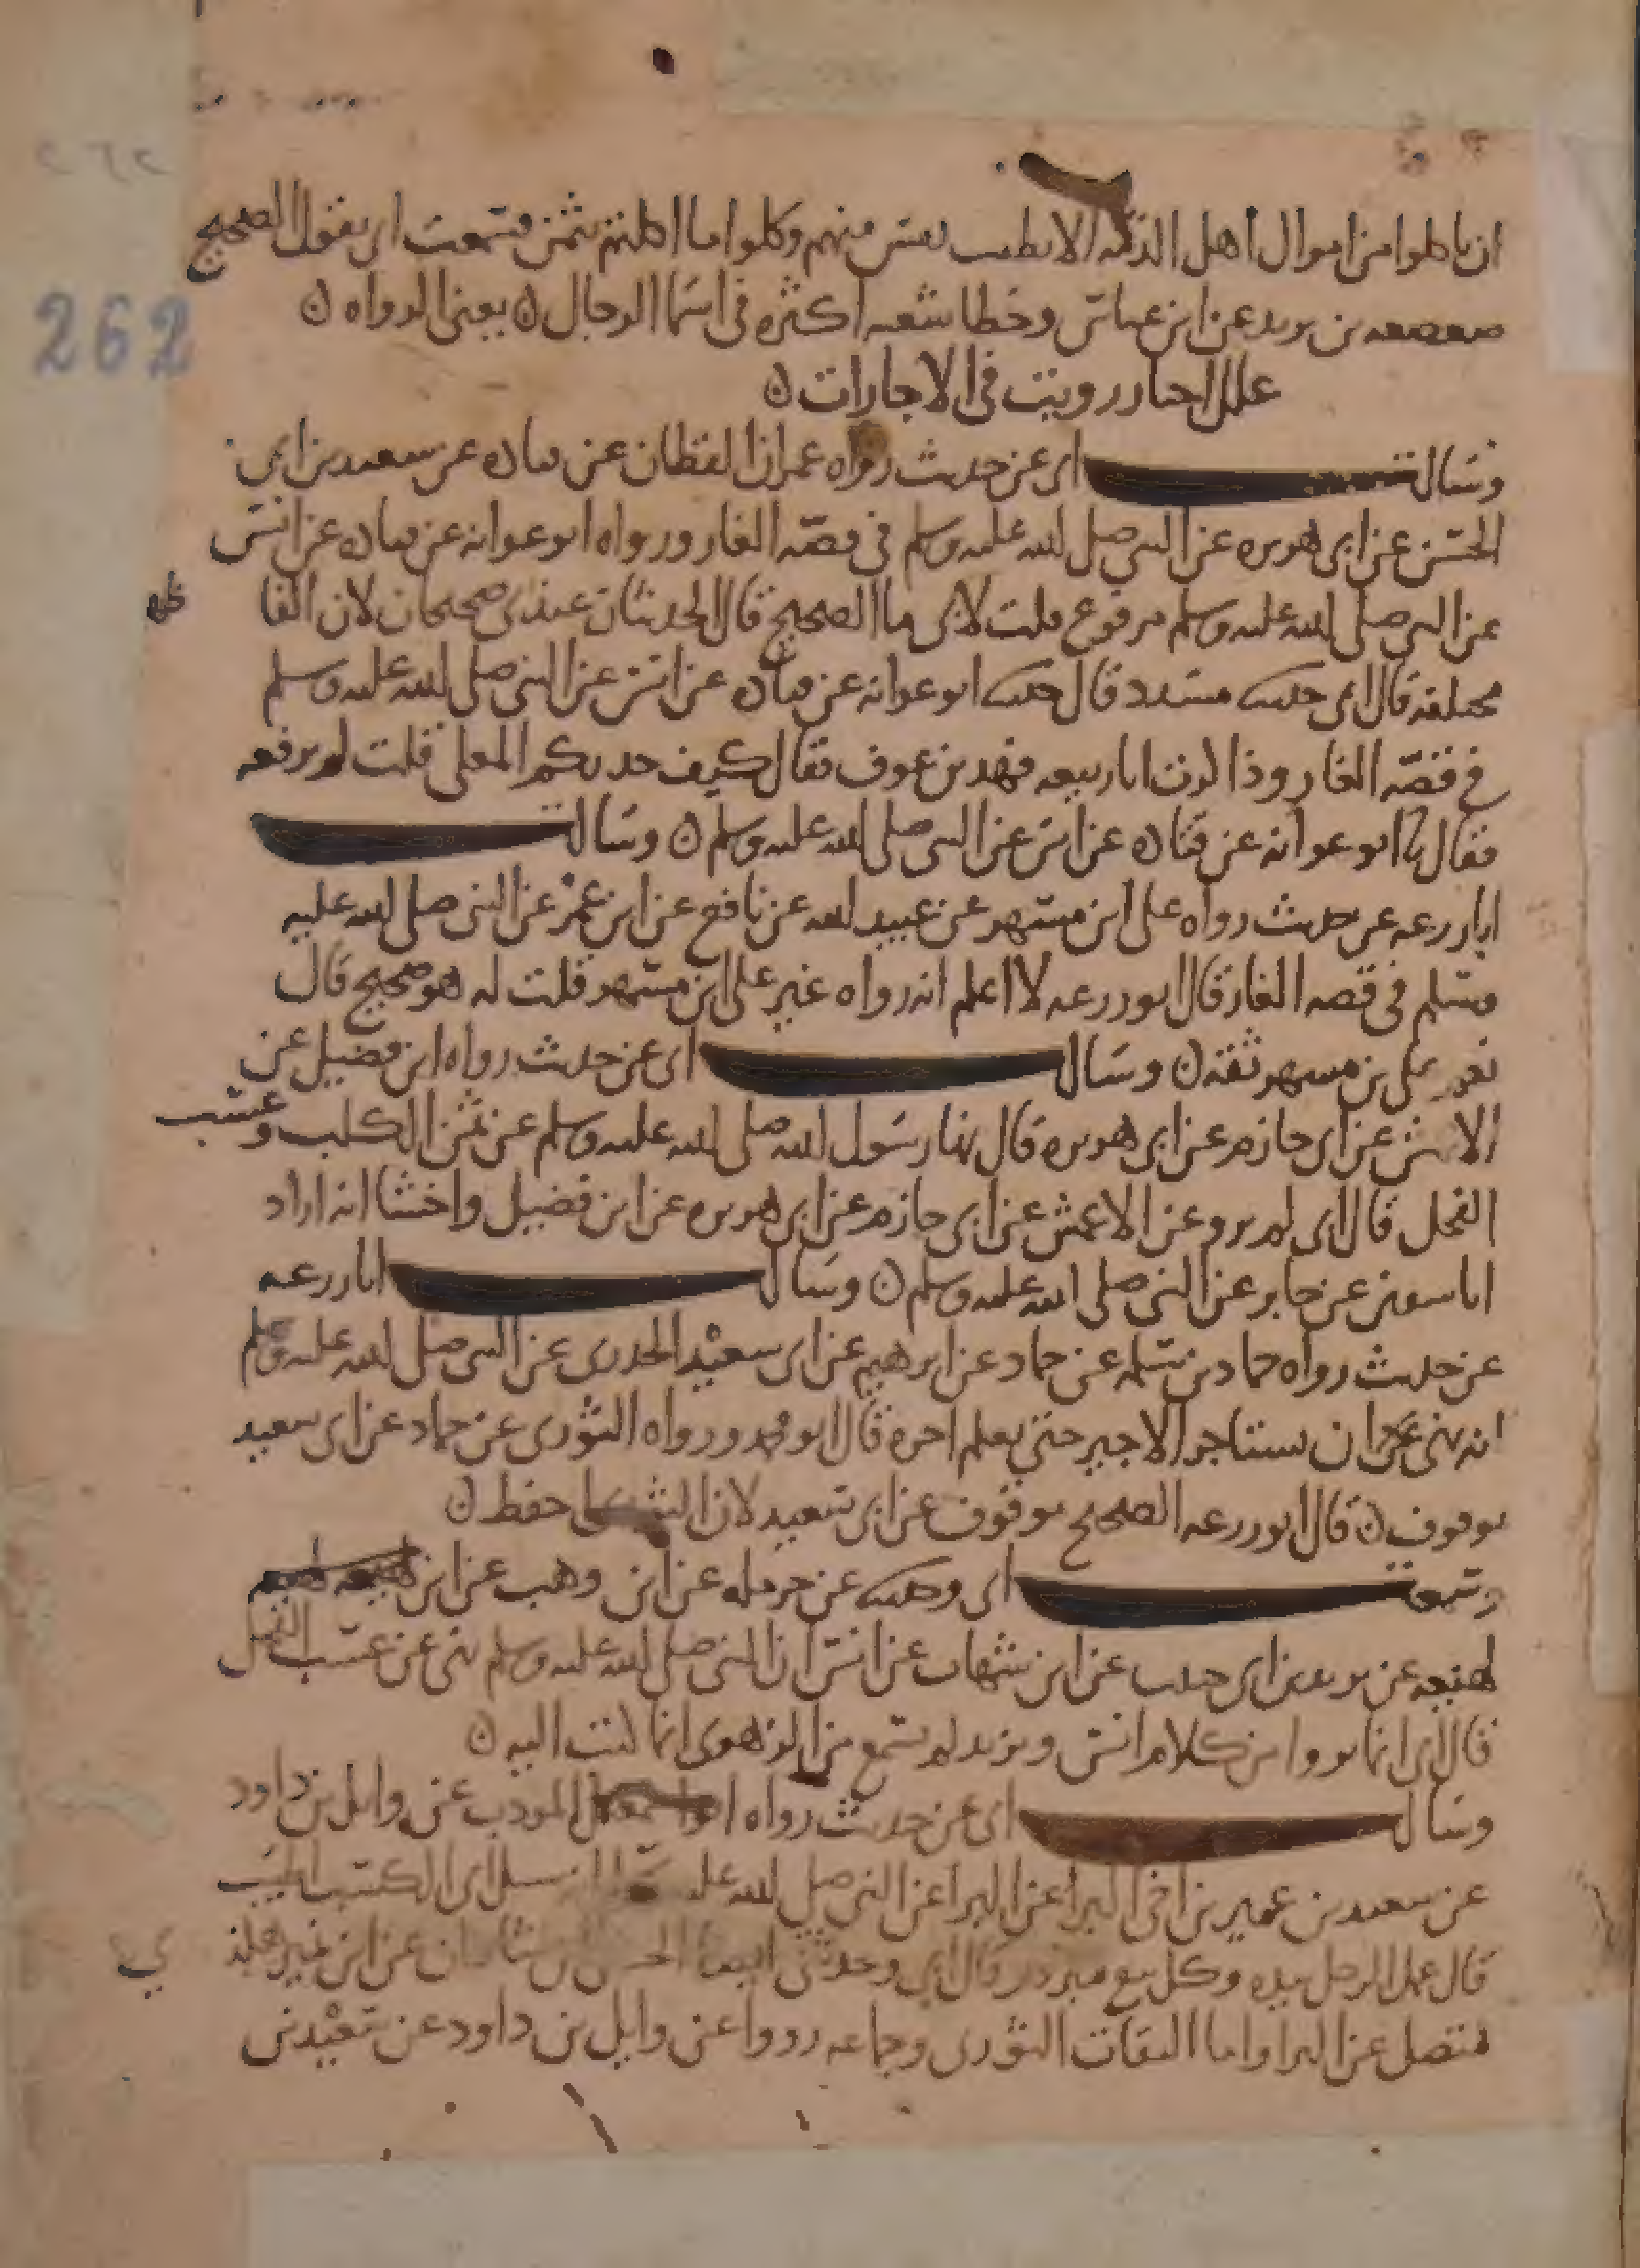 ٢٦٢
262
ان ياكلوا من اموال اهل الذمه الا بطيب نفس منهم وكلوا ما اكلتم بثمن فسمعت ابي يقول الصحيح
صعصعه بن يزيد عن ابن عباس وخطا شعبه اكثره في اسما الرجال ن يعني الرواه ن
علل اخبار رويت في الاجارات ن
وسالت ابي عن حديث رواه عمران القطان عن قتاده عن سعيد بن ابي
الحسن عن ابي هريره عن النبي صلى الله عليه وسلم في قصه الغار ورواه ابو عوانه عن قتاده عن انس
عن النبي صلى الله عليه وسلم مرفوع قلت لابي ما الصحيح قال الحديثان عندي صحيحان لان الفا
ظه
مختلفه قال ابي حدثنا مسدد قال حدثنا ابو عوانه عن قتاده عن انس عن النبي صلى الله عليه وسلم
في قصه الغار وذاكرت ابا ربيعه فهد بن عوف فقال كيف حدثكم المعلى قلت لم يرفعه
فقال نا ابو عوانه عن قتاده عن انس عن النبي صلى الله عليه وسلم ن وسالت
ابا زرعه عن حديث رواه علي ابن مسهر عن عبيد الله عن نافع عن ابن عمر عن النبي صلى الله عليه
وسلم في قصه الغار قال ابو زرعه لا اعلم انه رواه غير علي ابن مسهر قلت له هو صحيح قال
نعم علي بن مسهر ثقه ن وسالت ابي عن حديث رواه ابن فضيل عن
الاعمش عن ابي حازم عن ابي هريره قال نها رسول الله صلى الله عليه وسلم عن ثمن الكلب وعسب
الفحل قال ابي لم يرو عن الاعمش عن ابي حازم عن ابي هريره عن ابن فضيل واخشا انه اراد
ابا سفين عن جابر عن النبي صلى الله عليه وسلم ن وسالت ابا زرعه
عن حديث رواه حماد بن سلمه عن حماد عن ابرهيم عن ابي سعيد الخدري عن النبي صلى الله عليه وسلم
انه نهى عن ان يستاجر الاجير حتى يعلم اجره قال ابو محمد ورواه الثوري عن حماد عن ابي سعيد
موقوف ن قال ابو زرعه الصحيح موقوف عن ابي سعيد لان الثوري احفظ ن
وسمعت ابي وحدثنا عن حرمله عن ابن وهب عن ابن
لهيعه عن يزيد بن ابي حبيب عن ابن شهاب عن انس ان النبي صلى الله عليه وسلم نهى عن عسب الفحل
قال ابي انما يروا من كلام انس ويزيد لم يسمع من الزهري انما كتب اليه ن
وسالت ابي عن حديث رواه ابو اسمعيل المودب عن وايل بن داود
عن سعيد بن عمير بن اخي البرا عن البرا عن النبي صلى الله عليه سئل اي الكسب اطيب
قال عمل الرجل بيده وكل بيع مبرور قال ابي وحدثني ايضا الحسن بن عن ابن نمير هكذي
متصل عن البرا واما الثقات الثوري وجماعه رووا عن وايل بن داود عن سعيد بن